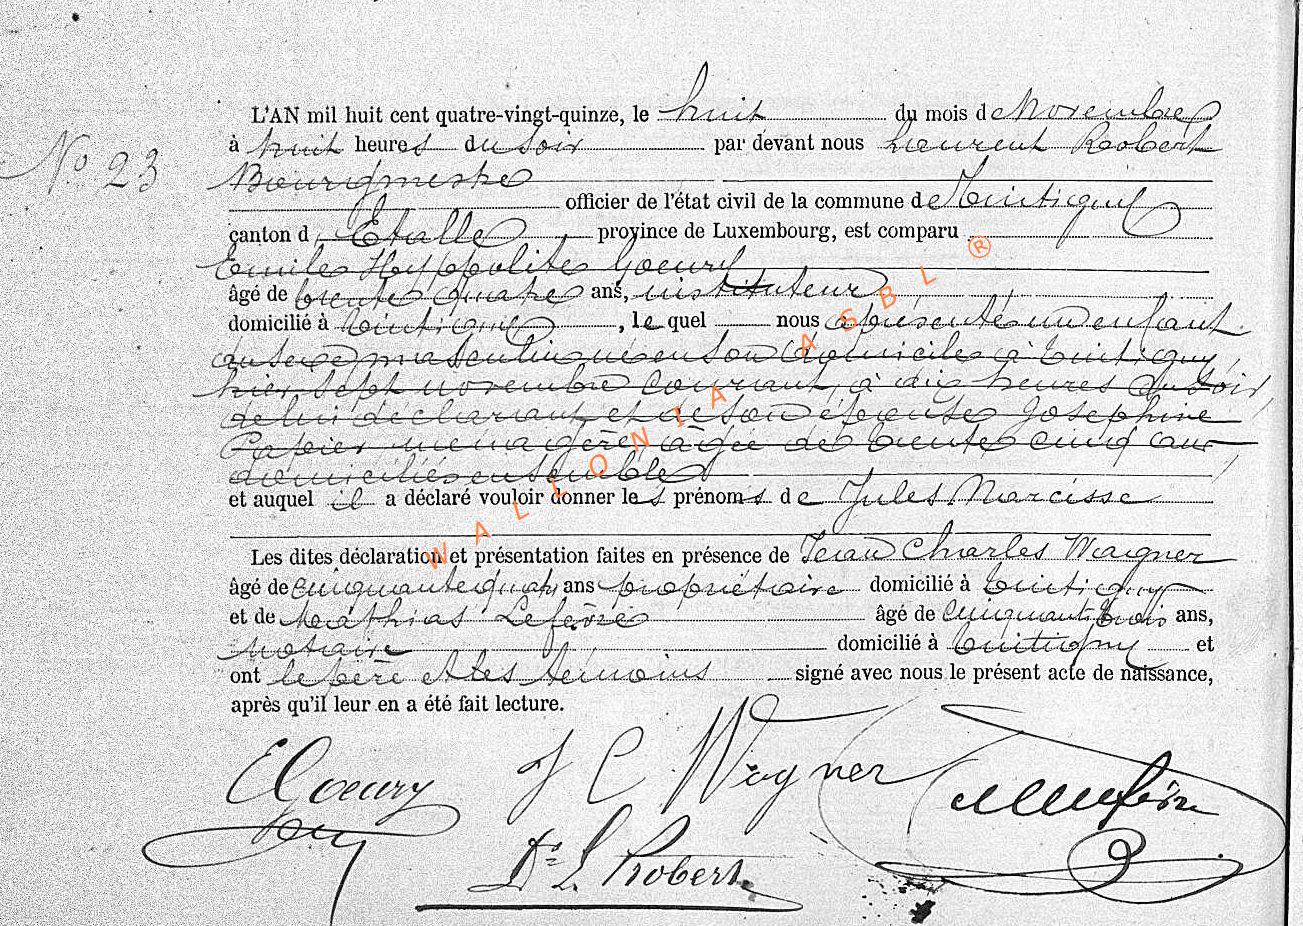 L'AN mil huit cent quatre-vingt-quinze, le huit du mois de Novembre
No 23
à huit heures du soir par devant nous Laurent Robert
Bourgmestre
officier de l'état civil de la commune de Tintigny
canton d'Etalle province de Luxembourg, est comparu
Emile Hyppolite Goeury
âgé de trente quatre ans, instituteur
domicilié à Tintigny, le quel nous a présenté un enfant
du sexe masculin né en son domicile à Tintigny,
hier sept novembre courant, à dix heures du soir,
de lui déclarant et de son épouse Joséphine
ménagère âgée de trente cinq ans
domiciliés ensemble
et auquel il a déclaré vouloir donner les prénoms de Jules Narcisse
Les dites déclaration et présentation faites en présence de Jean Charles Wagner
âgé de cinquante quatre ans propriétaire domicilié à Tintigny
et de Mathias Lefèvre âgé de cinquante trois ans,
Notaire domicilié à Tintigny et
ont le père et les témoins signé avec nous le présent acte de naissance,
après qu'il leur en a été fait lecture.
EGoeury J C Wagner
Dr L Robert
WALLONIA ASBL ®